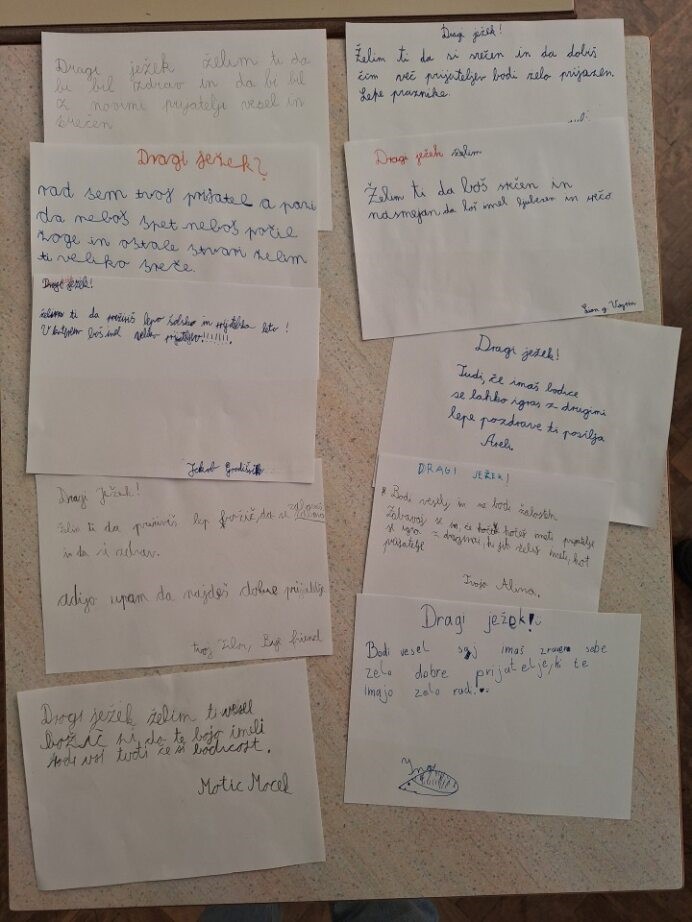 Dragi ježek želim ti da
bi bil zdrav in da bi bil
z novimi prijatelji vesel in
srečen
Dragi ježek?
rad sem tvoj prijatel a pazi
da neboš spet neboš počil
žoge in ostale stvari želim
ti veliko sreče.
Dragi ježek!
želim ti da preživiš lepo šolsko in prijateljsko leto !
V boš imel veliko prijateljev!!!!!!!.
Jakob
Dragi Ježek!
želim ti da preživiš lep božič, da se
in da si zdrav.
adijo upam da najdeš dobre prijatelje
tvoj friend
Dragi ježek želim ti vesel
božič ni, da te bojo imeli
radi vsi tudi če si bodičast.
Matic Macek
Dragi ježek!
Želim ti da si srečen in da dobiš
čim več prijateljev bodi zelo prijazen.
Lepe praznike.
Dragi ježek želim
Želim ti da boš srečen in
nasmejan da boš imel ljubezen in srečo
Dragi ježek!
Tudi, če imaš bodice
se lahko igraš z drugimi
lepe pozdrave ti pošilja
Areh.
DRAGI JEŽEK!
Bodi vesel, in ne bodi žalosten
Zabavaj se in, če hočeš imeti prijatelje
se igraj z drugimi, ki jih želiš imeti, kot
prijatelje
Tvoja Alina.
Dragi ježek!
Bodi vesel saj imaš zraven sebe
zelo dobre prijatelje, ki te
imajo zelo rad..